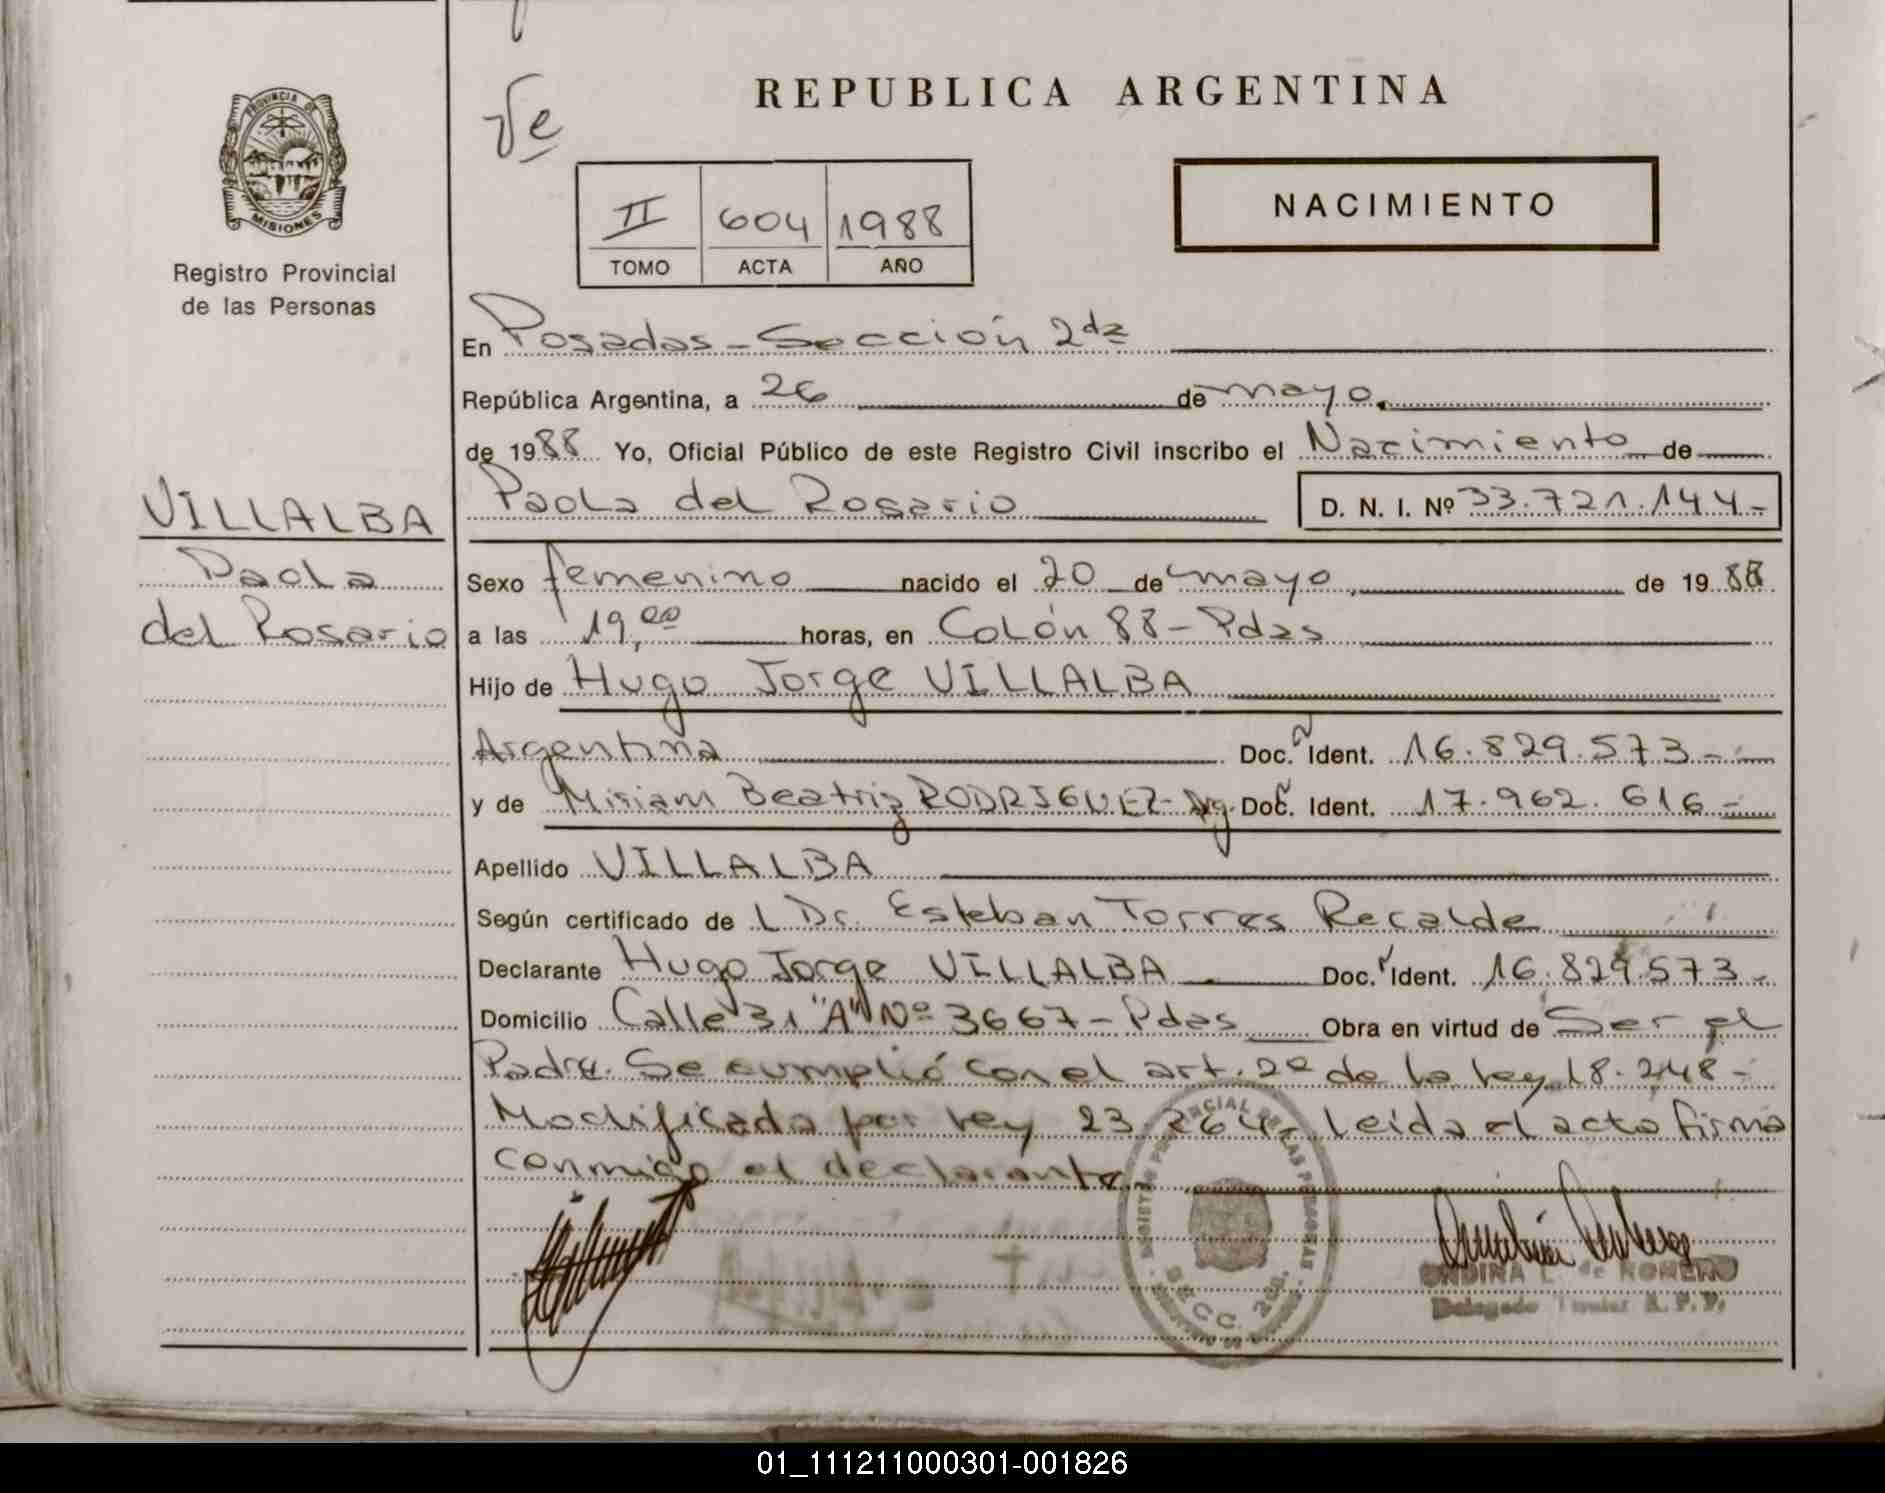 REPUBLICA ARGENTINA
PROVINCIA DE
MISIONES
Registro Provincial
de las Personas
NACIMIENTO
II 604 1988
TOMO ACTA AÑO
En Posadas - Sección 2da
República Argentina, a 26 de mayo
de 1988 Yo, Oficial Público de este Registro Civil inscribo el Nacimiento de
Paola del Rosario D. N. I. Nº 33.721.144-
VILLALBA
Paola
del Rosario
Sexo femenino nacido el 20 de mayo de 1988
a las 19,00 horas, en Colón 88 - Pdas
Hijo de Hugo Jorge VILLALBA
Argentina Doc. Ident. 16.829.573-
y de Miriam Beatriz RODRIGUEZ - Arg. Doc. Ident. 17.962.616-
Apellido VILLALBA
Según certificado de L Dr. Esteban Torres Recalde
Declarante Hugo Jorge VILLALBA Doc. Ident. 16.829.573-
Domicilio Calle 31 "A" Nº 3667 - Pdas Obra en virtud de Ser el
Padre. Se cumplió con el art. 2º de la ley 18.248-
Modificada por ley 23.264. Leida el acta firma
conmigo el declarante
ONDINA L. de ROMERO
Delegado Titular R. P. P.
01_111211000301-001826